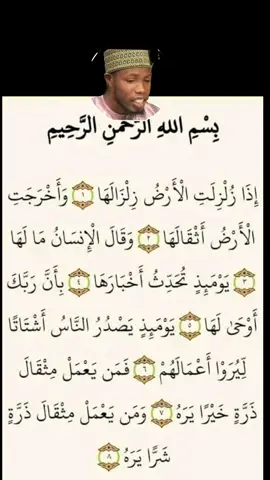 بِسْمِ اللهِ الرَّحْمَٰنِ الرَّحِيمِ
إِذَا زُلْزِلَتِ الْأَرْضُ زِلْزَالَهَا ١ وَأَخْرَجَتِ
الْأَرْضُ أَثْقَالَهَا ٢ وَقَالَ الْإِنسَانُ مَا لَهَا
٣ يَوْمَئِذٍ تُحَدِّثُ أَخْبَارَهَا ٤ بِأَنَّ رَبَّكَ
أَوْحَىٰ لَهَا ٥ يَوْمَئِذٍ يَصْدُرُ النَّاسُ أَشْتَاتًا
لِّيُرَوْا أَعْمَالَهُمْ ٦ فَمَن يَعْمَلْ مِثْقَالَ
ذَرَّةٍ خَيْرًا يَرَهُ ٧ وَمَن يَعْمَلْ مِثْقَالَ ذَرَّةٍ
شَرًّا يَرَهُ ٨